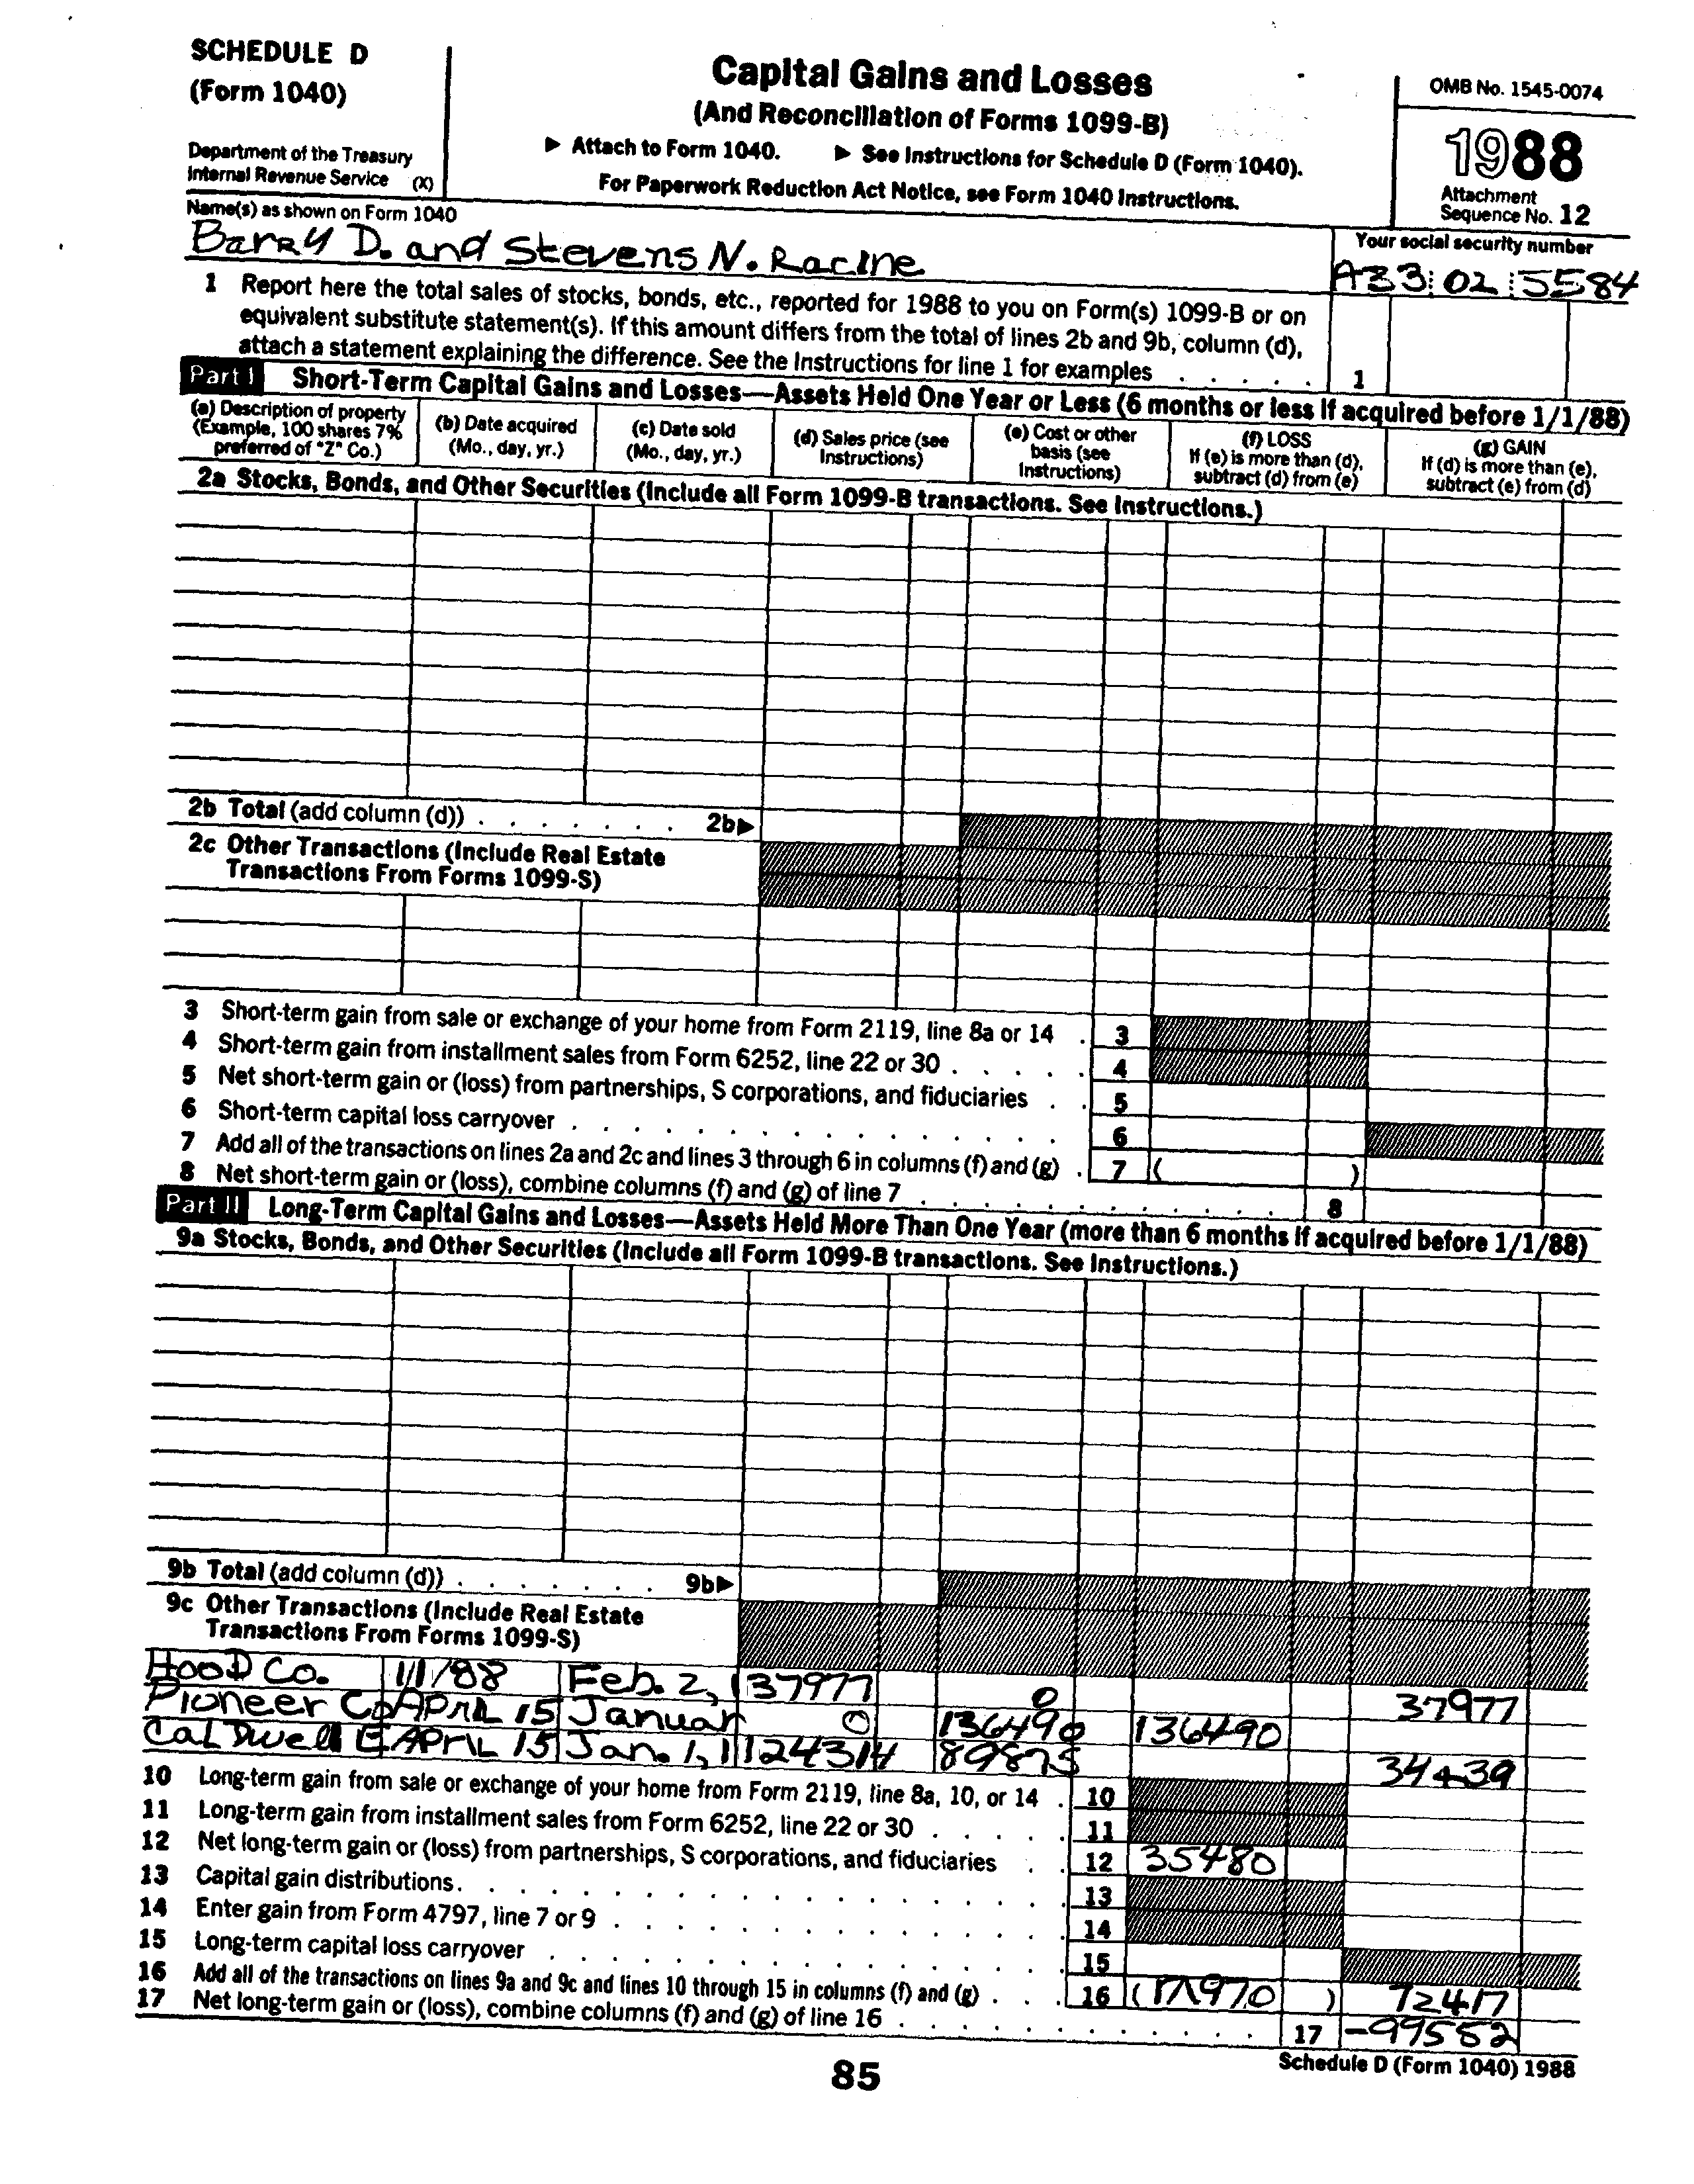 SCHEDULE D
(Form 1040)
Department of the Treasury
Internal Revenue Service (X)
Capital Gains and Losses
(And Reconciliation of Forms 1099-B)
▶ Attach to Form 1040. ▶ See Instructions for Schedule D (Form 1040).
For Paperwork Reduction Act Notice, see Form 1040 Instructions.
OMB No. 1545-0074
1988
Attachment
Sequence No. 12
Name(s) as shown on Form 1040
Barry D. and Stevens N. Racine
Your social security number
A33 02 5584
1 Report here the total sales of stocks, bonds, etc., reported for 1988 to you on Form(s) 1099-B or on
equivalent substitute statement(s). If this amount differs from the total of lines 2b and 9b, column (d),
attach a statement explaining the difference. See the Instructions for line 1 for examples . . . . . 1
Part I Short-Term Capital Gains and Losses—Assets Held One Year or Less (6 months or less if acquired before 1/1/88)
(a) Description of property
(Example, 100 shares 7%
preferred of "Z" Co.)
(b) Date acquired
(Mo., day, yr.)
(c) Date sold
(Mo., day, yr.)
(d) Sales price (see
Instructions)
(e) Cost or other
basis (see
Instructions)
(f) LOSS
If (e) is more than (d),
subtract (d) from (e)
(g) GAIN
If (d) is more than (e),
subtract (e) from (d)
2a Stocks, Bonds, and Other Securities (Include all Form 1099-B transactions. See Instructions.)
2b Total (add column (d)) . . . . . . . 2b▶
2c Other Transactions (Include Real Estate
Transactions From Forms 1099-S)
3 Short-term gain from sale or exchange of your home from Form 2119, line 8a or 14 . 3
4 Short-term gain from installment sales from Form 6252, line 22 or 30 . . . . . 4
5 Net short-term gain or (loss) from partnerships, S corporations, and fiduciaries . . 5
6 Short-term capital loss carryover . . . . . . . . . . . . . . . . 6
7 Add all of the transactions on lines 2a and 2c and lines 3 through 6 in columns (f) and (g) . 7 ( )
8 Net short-term gain or (loss), combine columns (f) and (g) of line 7 . . . . . . . . . . . . 8
Part II Long-Term Capital Gains and Losses—Assets Held More Than One Year (more than 6 months if acquired before 1/1/88)
9a Stocks, Bonds, and Other Securities (Include all Form 1099-B transactions. See Instructions.)
9b Total (add column (d)) . . . . . . . 9b▶
9c Other Transactions (Include Real Estate
Transactions From Forms 1099-S)
Hood Co. 1/1/88 Feb. 2, 137977 0 37977
Pioneer Co April 15 Januar 0 136490 136490
Caldwell E April 15 Jan. 1, 1 124314 89875 34439
10 Long-term gain from sale or exchange of your home from Form 2119, line 8a, 10, or 14 . 10
11 Long-term gain from installment sales from Form 6252, line 22 or 30 . . . . . 11
12 Net long-term gain or (loss) from partnerships, S corporations, and fiduciaries . . 12 35480
13 Capital gain distributions . . . . . . . . . . . . . . . . . . 13
14 Enter gain from Form 4797, line 7 or 9 . . . . . . . . . . . . . . 14
15 Long-term capital loss carryover . . . . . . . . . . . . . . . . 15
16 Add all of the transactions on lines 9a and 9c and lines 10 through 15 in columns (f) and (g) . . . 16 ( 171970 ) 72417
17 Net long-term gain or (loss), combine columns (f) and (g) of line 16 . . . . . . . . . . . . 17 -99552
85
Schedule D (Form 1040) 1988